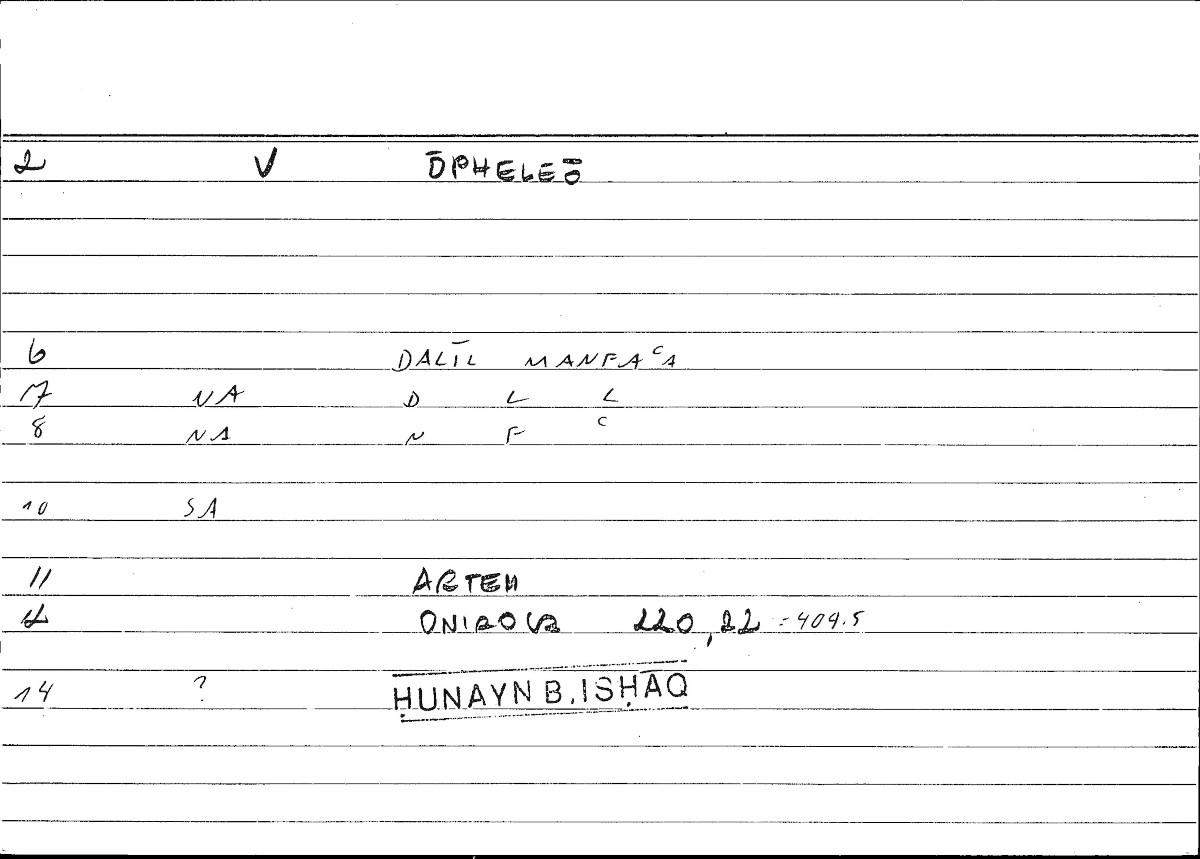 2 V ŌPHELEŌ
6 DALĪL MANFAᶜA
7 NA D L L
8 NA N F ᶜ
10 SA
11 ARTEM
12 ONIROCR 220,22 = 409.5
14 ? ḤUNAYN B. ISḤĀQ